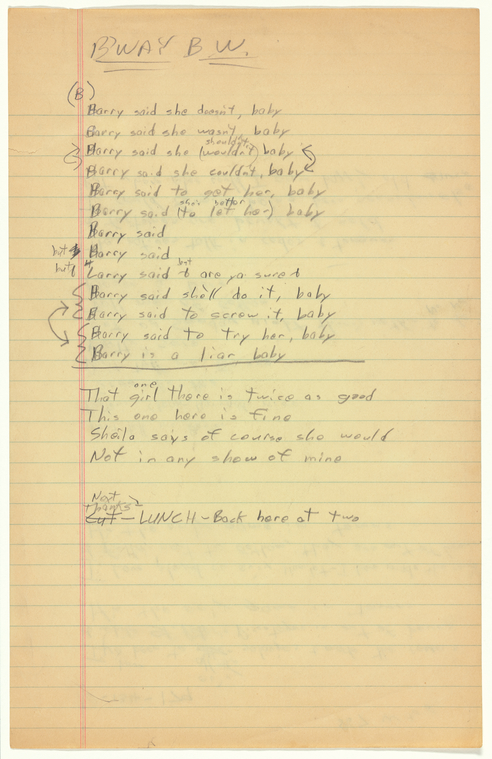 BWAY B.W.
(B)
Barry said she doesn't, baby
Barry said she wasn't, baby
shouldn't
Barry said she (wouldn't) baby
Barry said she couldn't, baby
Barry said to get her, baby
she's hotter
Barry said (to let her) baby
Barry said
Barry said
but
Larry said are ya sure
Barry said she'll do it, baby
Barry said to screw it, baby
Barry said to try her, baby
Barry is a liar baby
one
That girl there is twice as good
This one here is fine
Sheila says of course she would
Not in any show of mine
Next
Thanks
Cut - LUNCH - Back here at two